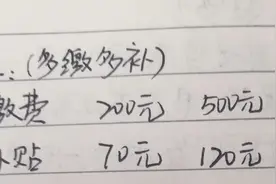 :(多缴多补)
缴费 200元 500元
补贴 70元 120元